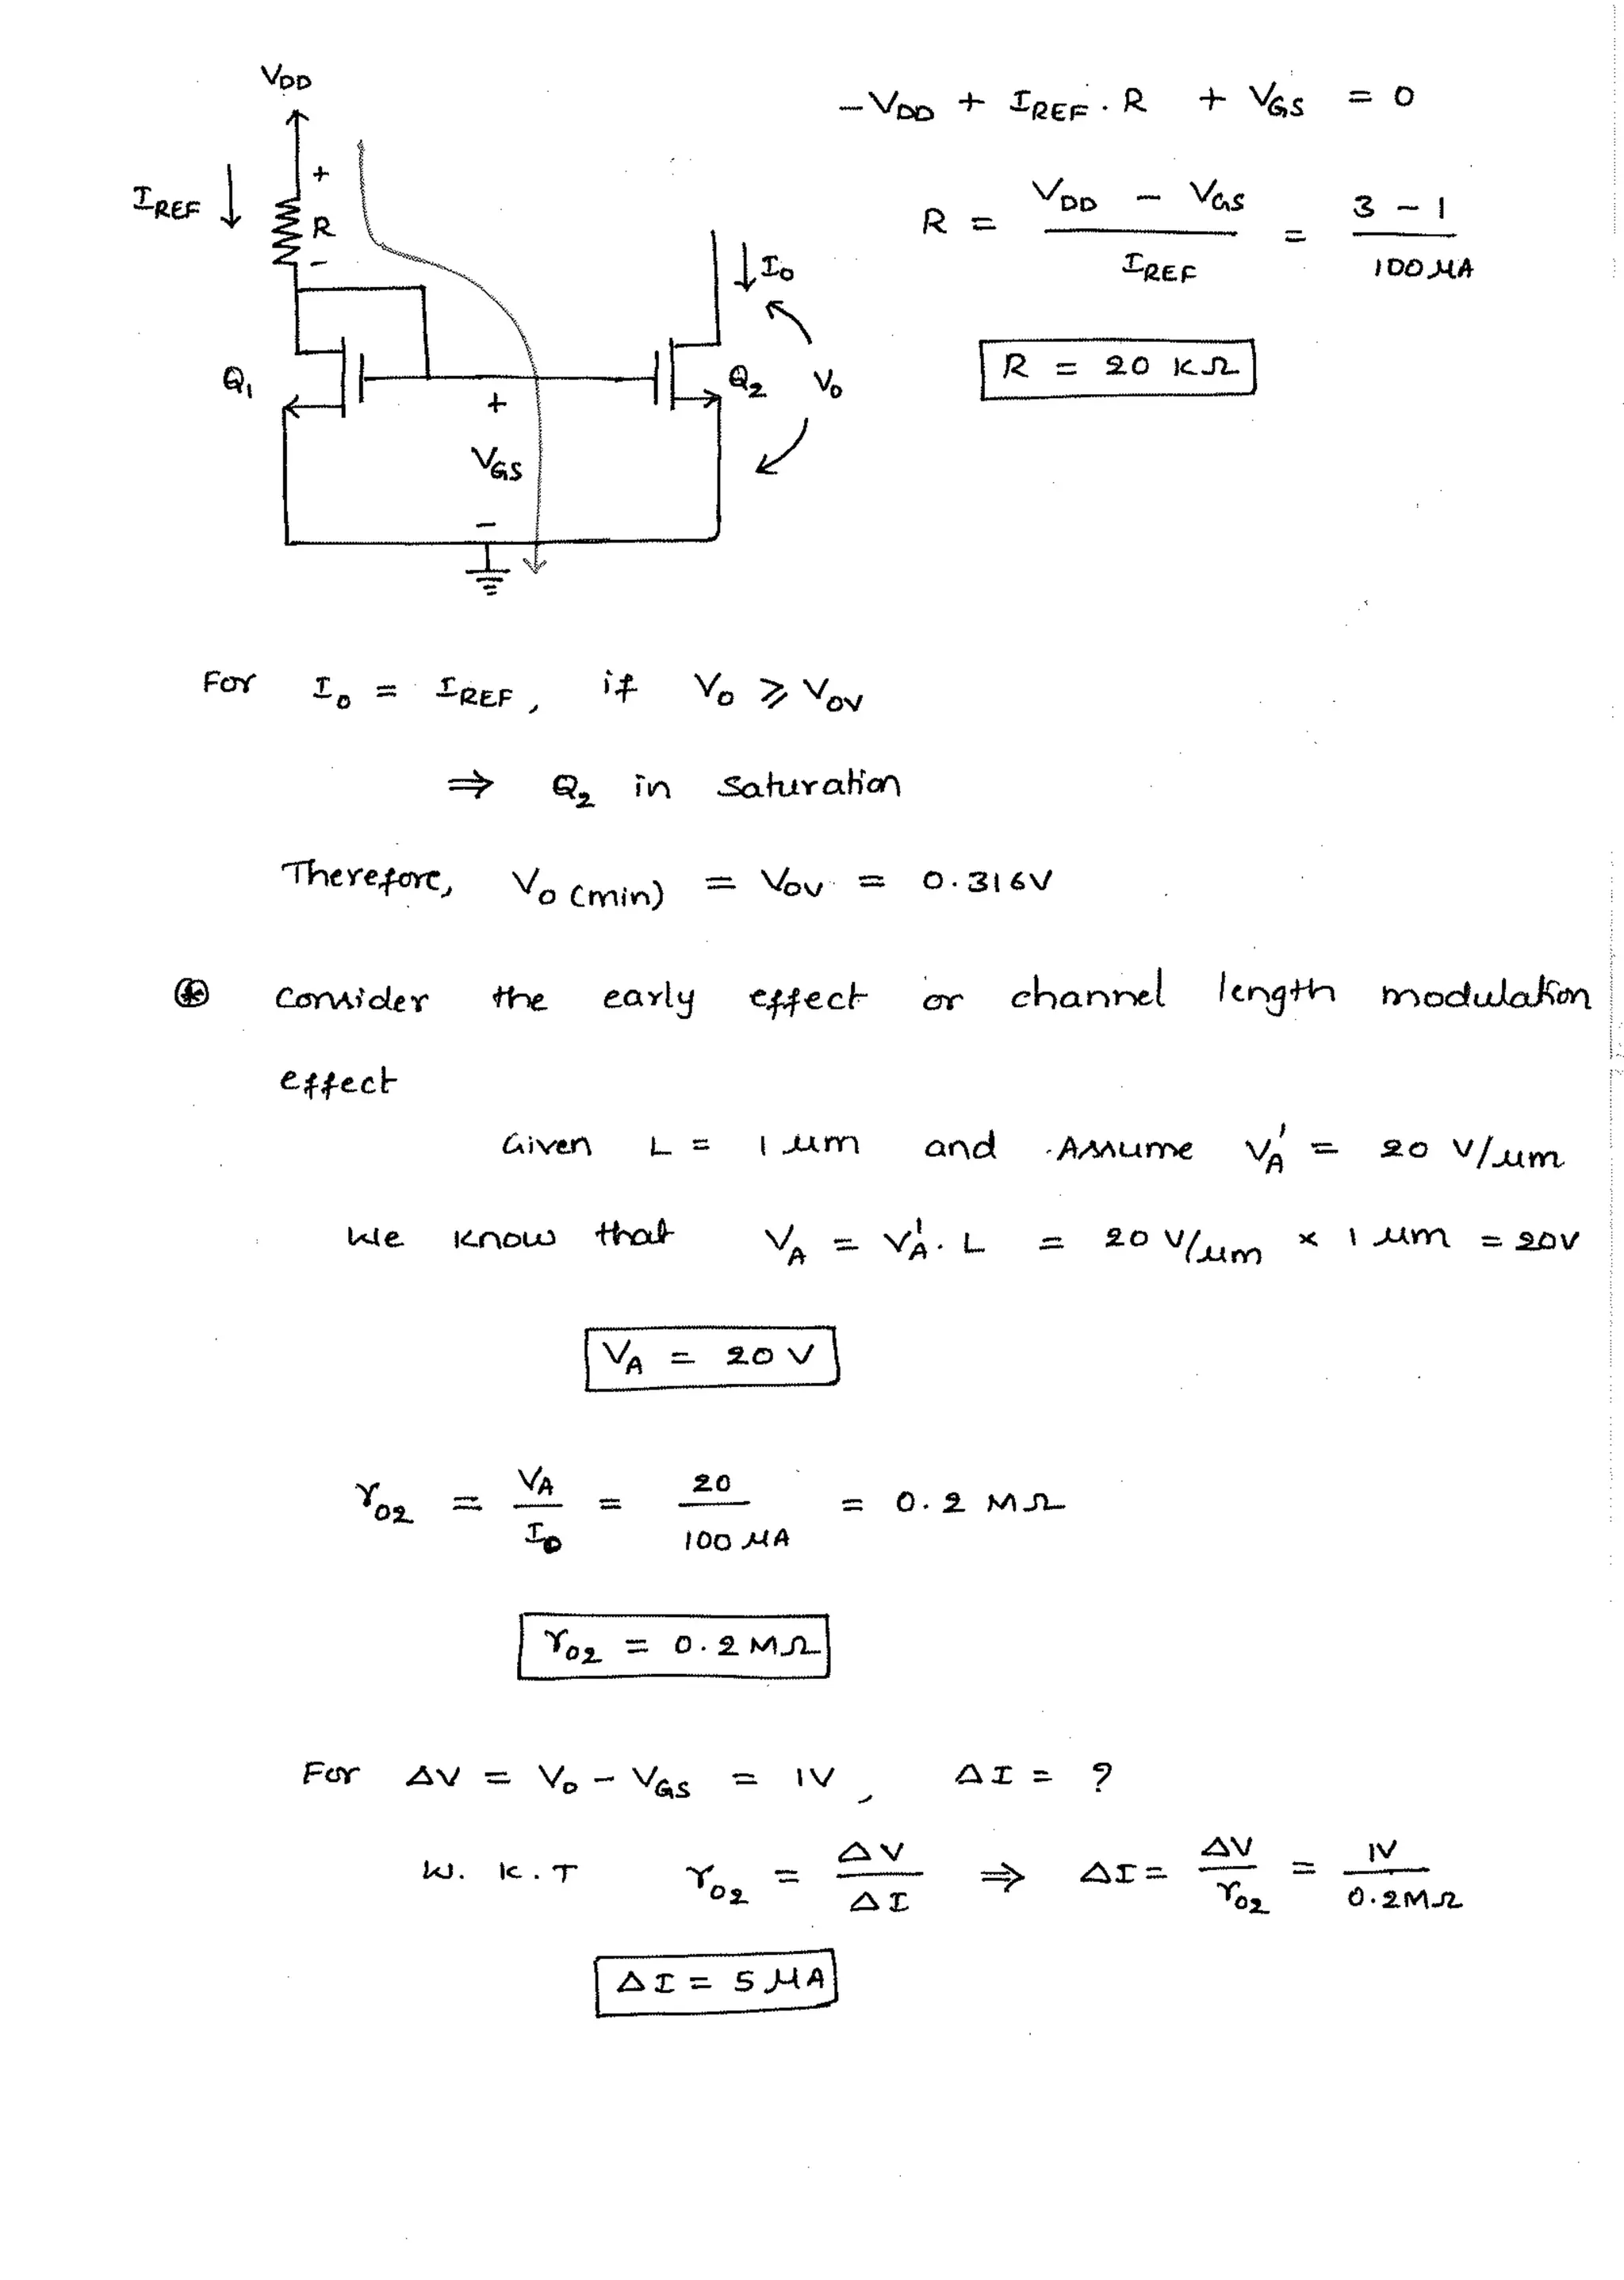 VDD
-VDD + IREF . R + VGS = 0
IREF ↓
+
R
-
R = (VDD - VGS) / IREF = (3 - 1) / 100 µA
↓ I0
R = 20 KΩ
Q1
Q2
V0
+
VGS
-
For I0 = IREF, if V0 ⩾ VOV
⇒ Q2 in saturation
Therefore, V0 (min) = VOV = 0.316V
⊛ Consider the early effect or channel length modulation
effect
Given L = 1 µm and Assume VA' = 20 V/µm
We know that VA = VA'. L = 20 V/µm × 1 µm = 20V
VA = 20 V
r02 = VA / ID = 20 / 100 µA = 0.2 MΩ
r02 = 0.2 MΩ
For ΔV = V0 - VGS = 1V, ΔI = ?
W. K. T r02 = ΔV / ΔI ⇒ ΔI = ΔV / r02 = 1V / 0.2MΩ
ΔI = 5 µA